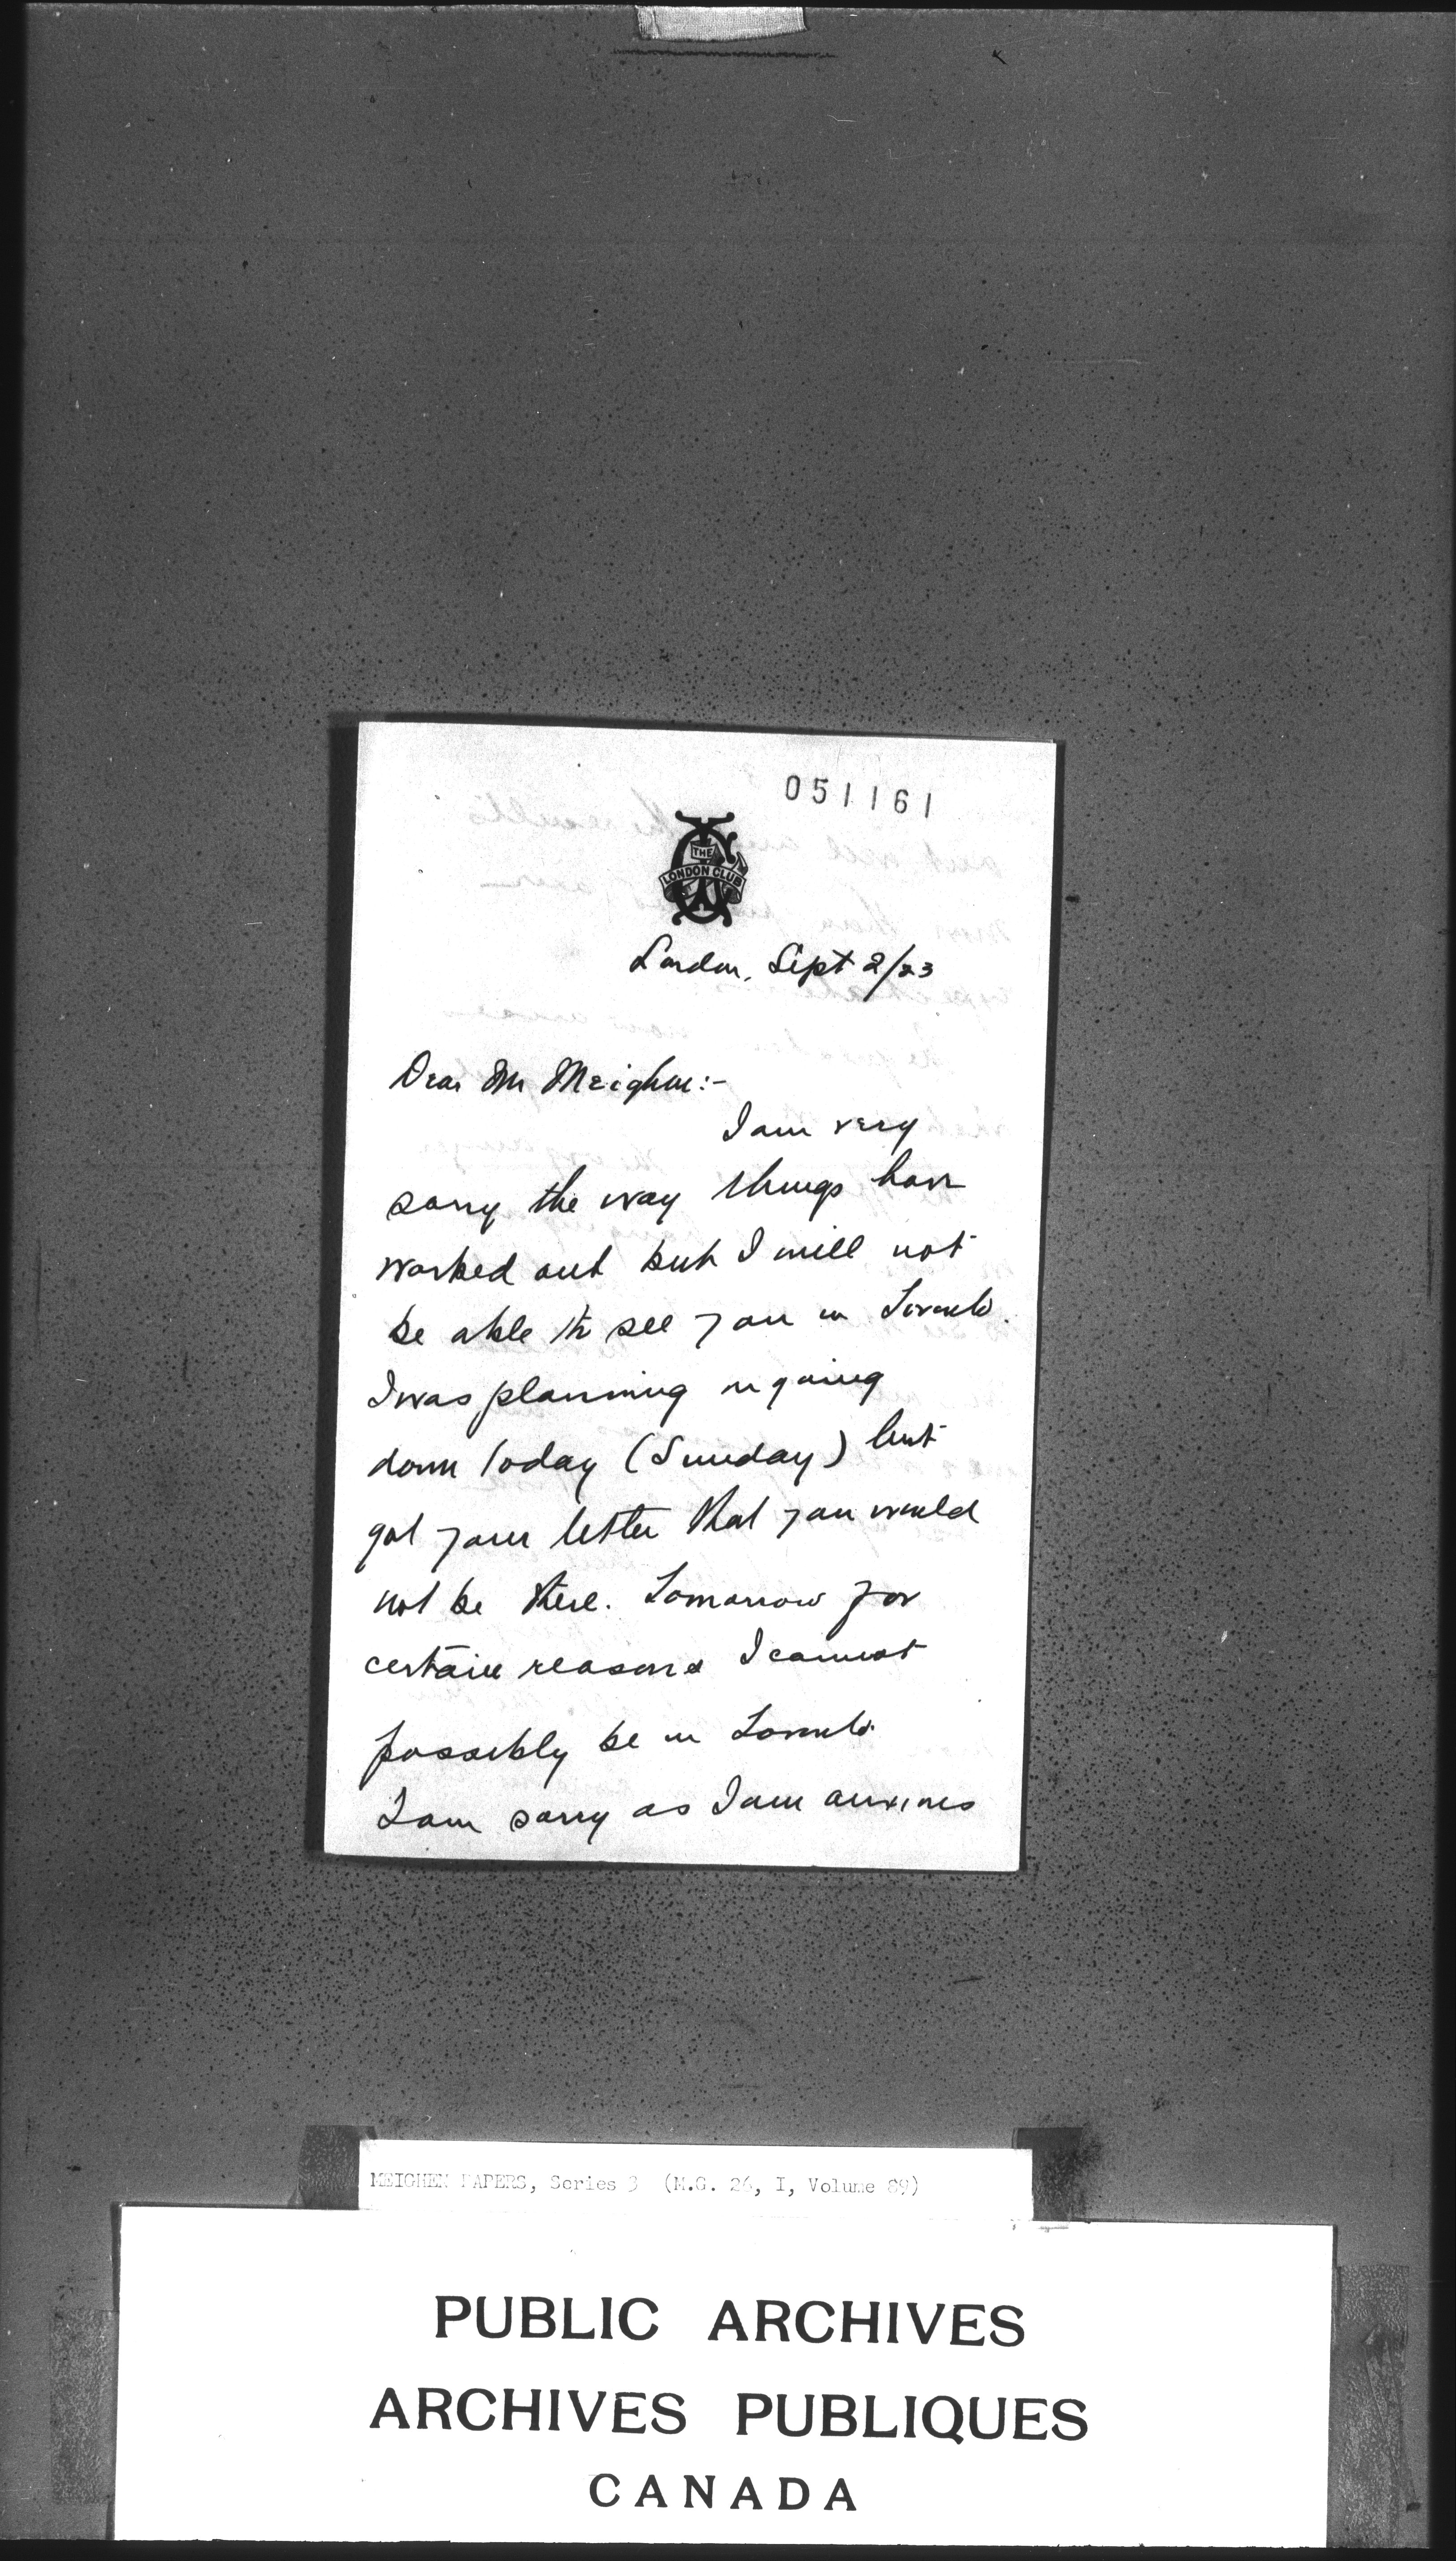 051161
THE
LONDON CLUB
London, Sept 2/23
Dear Mr Meighen:-
I am very
sorry the way things have
worked out but I will not
be able to see you in Toronto.
I was planning on going
down today (Sunday) but
got your letter that you would
not be there. Tomorrow for
certain reasons I cannot
possibly be in Toronto.
I am sorry as I am anxious
MEIGHEN PAPERS, Series 3 (M.G. 26, I, Volume 89)
PUBLIC ARCHIVES
ARCHIVES PUBLIQUES
CANADA